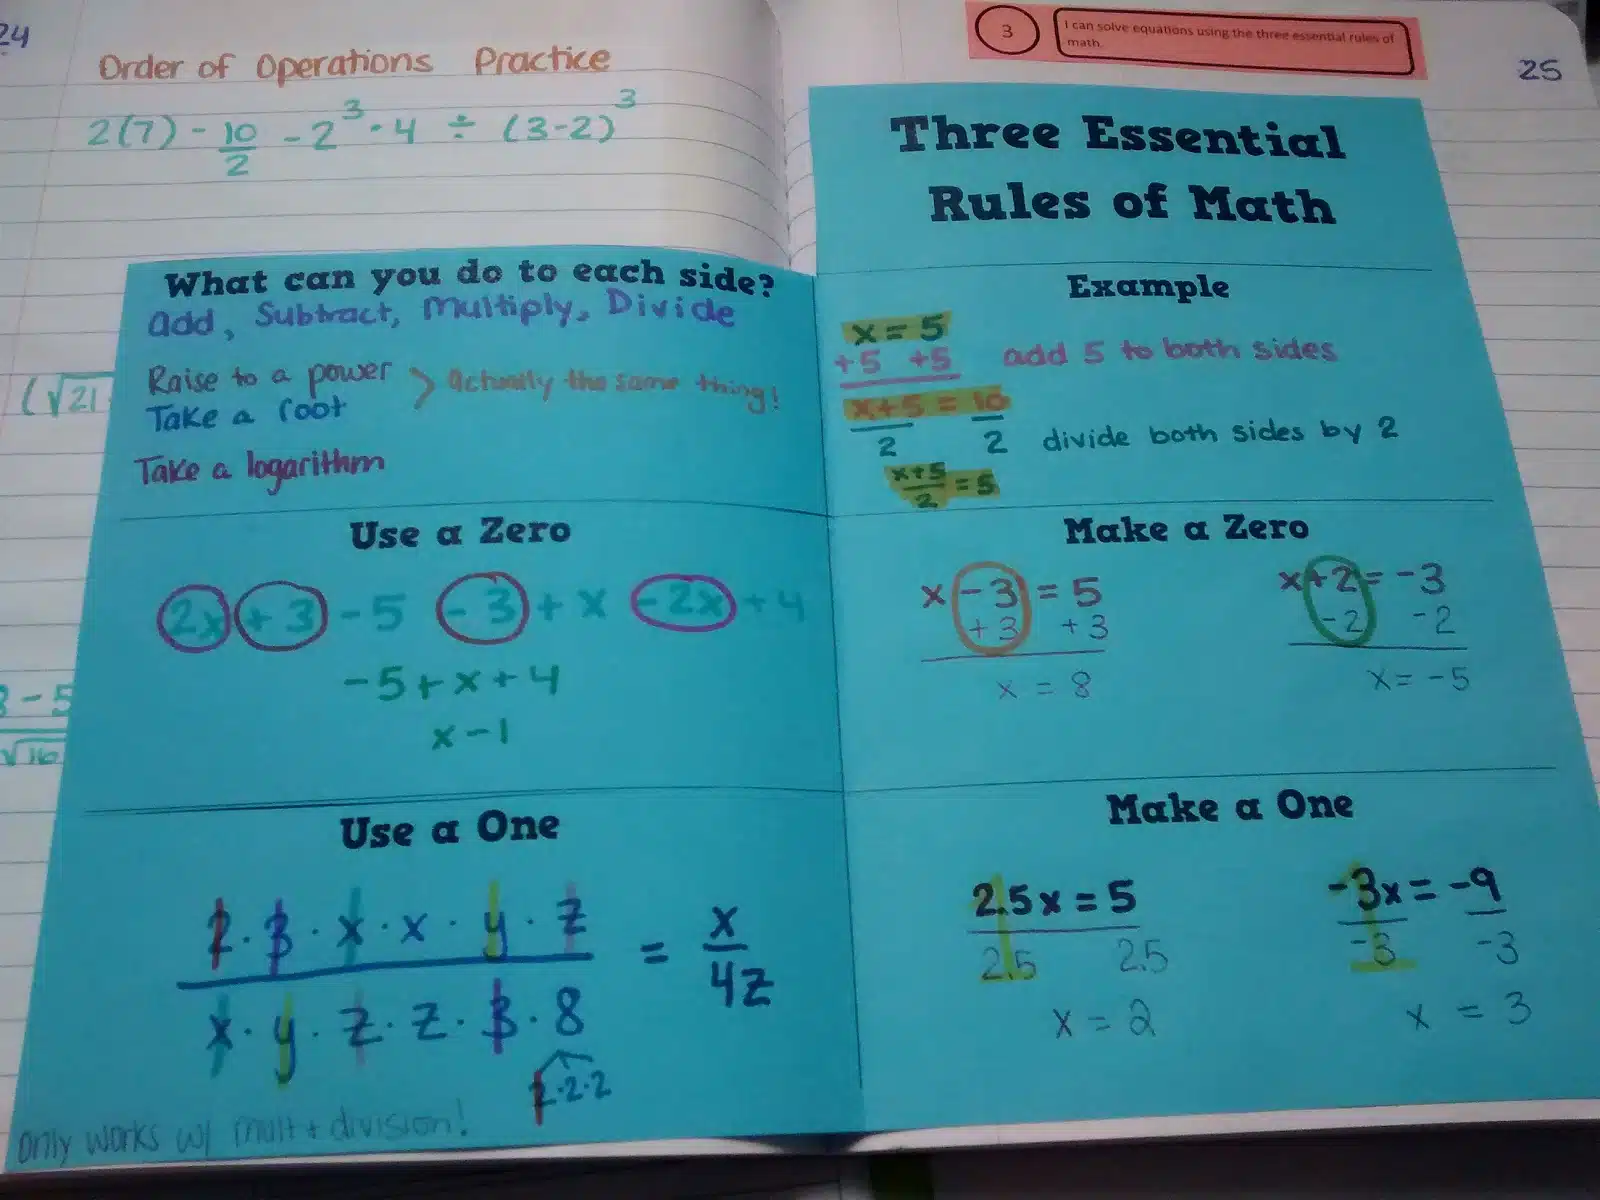 24
Order of Operations Practice
2(7) - 10/2 - 2³ · 4 ÷ (3-2)³
(√21
3 - 5
√16
3
I can solve equations using the three essential rules of
math.
25
Three Essential
Rules of Math
What can you do to each side?
add, Subtract, Multiply, Divide
Raise to a power
Take a root
> actually the same thing!
Take a logarithm
Example
x = 5
+5 +5 add 5 to both sides
x+5 = 10
2 2 divide both sides by 2
x+5/2 = 5
Use a Zero
2x + 3 - 5 - 3 + x - 2x + 4
-5 + x + 4
x - 1
Make a Zero
x - 3 = 5
+ 3 + 3
x = 8
x + 2 = -3
- 2 - 2
x = -5
Use a One
2 · 3 · x · x · y · z
x · y · z · z · 3 · 8
= x/4z
2·2·2
only works w/ mult + division!
Make a One
2.5x = 5
2.5 2.5
x = 2
-3x = -9
-3 -3
x = 3